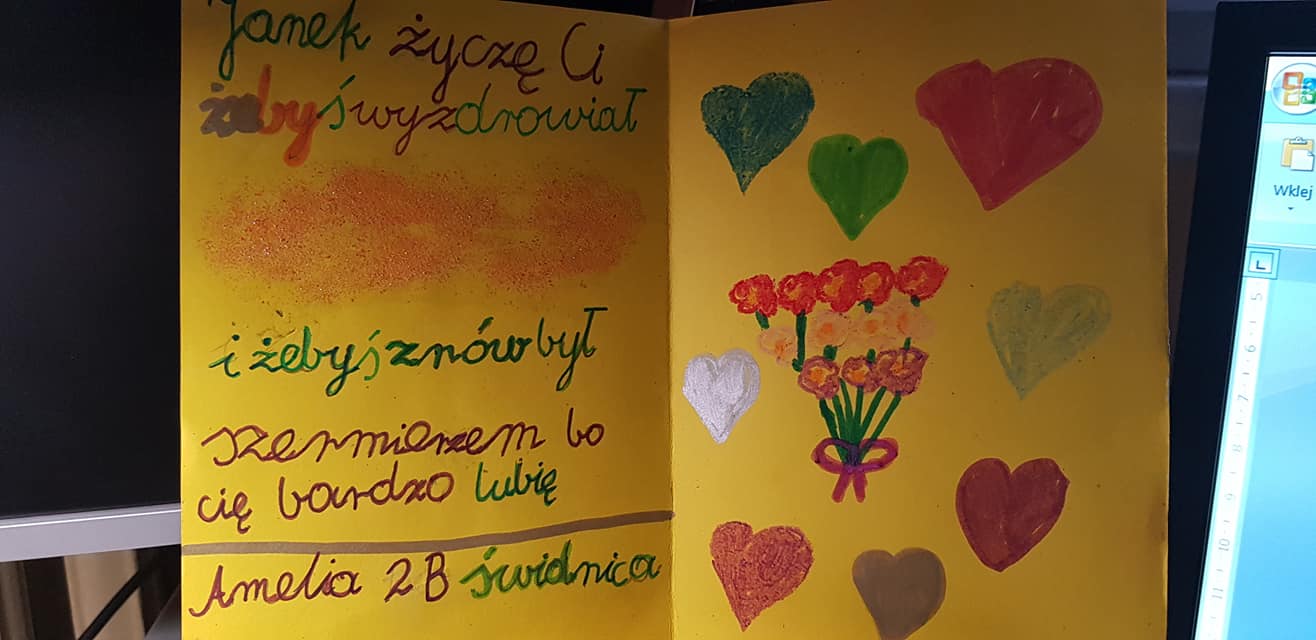 Janek życzę Ci
żebyś wyzdrowiał
i żebyś znów był
szermierzem bo
cię bardzo lubię
Amelia 2B świdnica
Wklej
L
5
1
6
1
7
1
8
1
9
1
10
1
11